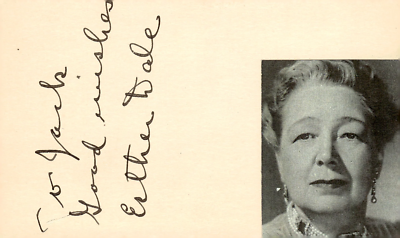 To Jack
Good wishes
Esther Dale